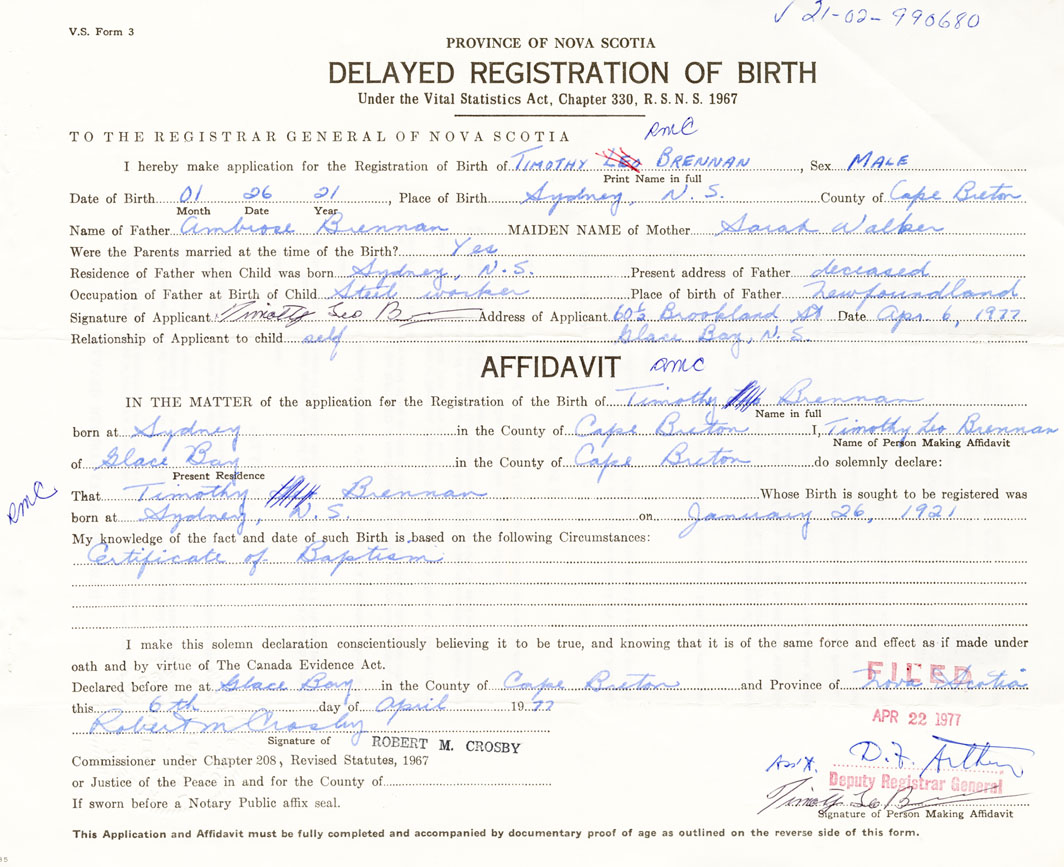 √ 21-02-990680
V.S. Form 3
PROVINCE OF NOVA SCOTIA
DELAYED REGISTRATION OF BIRTH
Under the Vital Statistics Act, Chapter 330, R.S.N.S. 1967
TO THE REGISTRAR GENERAL OF NOVA SCOTIA
RMC
I hereby make application for the Registration of Birth of TIMOTHY LEO BRENNAN, Sex MALE
Print Name in full
Date of Birth 01 26 21, Place of Birth Sydney, N.S. County of Cape Breton
Month Date Year
Name of Father Ambrose Brennan MAIDEN NAME of Mother Sarah Walker
Were the Parents married at the time of the Birth? Yes
Residence of Father when Child was born Sydney, N.S. Present address of Father deceased
Occupation of Father at Birth of Child Steel worker Place of birth of Father Newfoundland
Signature of Applicant Timothy Leo B Address of Applicant 60½ Brookland St Date Apr 6, 1977
Relationship of Applicant to child self Glace Bay, N.S.
AFFIDAVIT RMC
IN THE MATTER of the application for the Registration of the Birth of Timothy Brennan
Name in full
born at Sydney in the County of Cape Breton I, Timothy Leo Brennan
Name of Person Making Affidavit
of Glace Bay in the County of Cape Breton do solemnly declare:
Present Residence
RMC That Timothy Brennan Whose Birth is sought to be registered was
born at Sydney, N.S. on January 26, 1921
My knowledge of the fact and date of such Birth is based on the following Circumstances:
Certificate of Baptism
I make this solemn declaration conscientiously believing it to be true, and knowing that it is of the same force and effect as if made under
oath and by virtue of The Canada Evidence Act.
FILED
Declared before me at Glace Bay in the County of Cape Breton and Province of Nova Scotia
this 6th day of April 1977
APR 22 1977
Robert M Crosby
Signature of ROBERT M. CROSBY
Commissioner under Chapter 208, Revised Statutes, 1967
Ass't. D.F. Arthur
or Justice of the Peace in and for the County of
Deputy Registrar General
If sworn before a Notary Public affix seal.
Timothy Leo B
Signature of Person Making Affidavit
This Application and Affidavit must be fully completed and accompanied by documentary proof of age as outlined on the reverse side of this form.